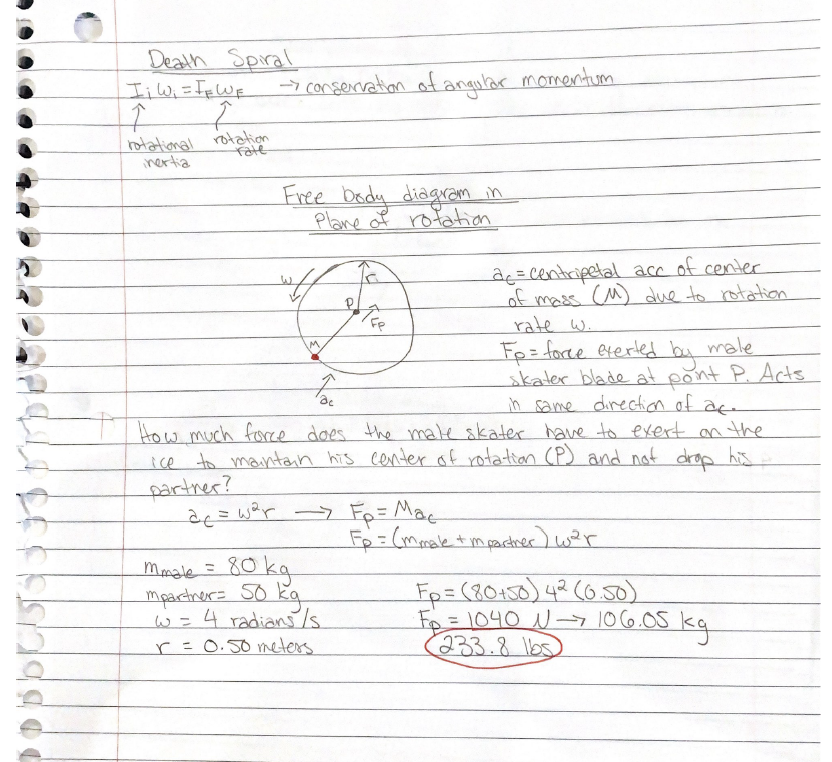 Death Spiral
Iᵢωᵢ = I_Fω_F → conservation of angular momentum
rotational inertia
rotation rate
Free body diagram in
Plane of rotation
ω
r
P
F_P
M
a_c
a_c = centripetal acc of center
of mass (M) due to rotation
rate ω.
F_P = force exerted by male
skater blade at point P. Acts
in same direction of a_c.
How much force does the male skater have to exert on the
ice to maintain his center of rotation (P) and not drop his
partner?
a_c = ω²r → F_P = Ma_c
F_P = (m_male + m_partner) ω²r
m_male = 80 kg
m_partner = 50 kg
ω = 4 radians/s
r = 0.50 meters
F_P = (80+50) 4² (0.50)
F_P = 1040 N → 106.05 kg
233.8 lbs